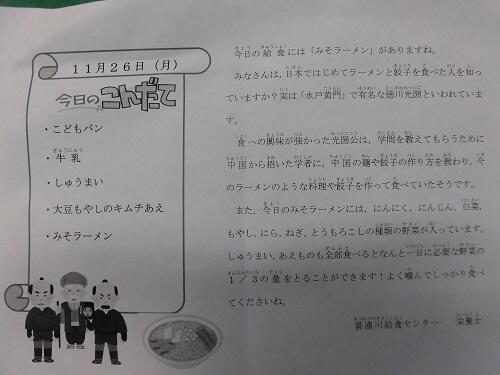 11月26日(月)
今日のこんだて
・こどもパン
・牛乳
・しゅうまい
・大豆もやしのキムチあえ
・みそラーメン
今日の給食には「みそラーメン」がありますね。
みなさんは、日本ではじめてラーメンと餃子を食べた人を知っ
ていますか？実は「水戸黄門」で有名な徳川光圀といわれていま
す。
食への興味が強かった光圀公は、学問を教えてもらうために
中国から招いた学者に、中国の麺や餃子の作り方を教わり、今
のラーメンのような料理や餃子を作って食べていたそうです。
また、今日のみそラーメンには、にんにく、にんじん、白菜、
もやし、にら、ねぎ、とうもろこしの種類の野菜が入っています。
しゅうまい、あえものも全部食べるとなんと一日に必要な野菜の
1/3の量をとることができます！よく噛んでしっかり食べ
てくださいね。
喜連川給食センター　栄養士